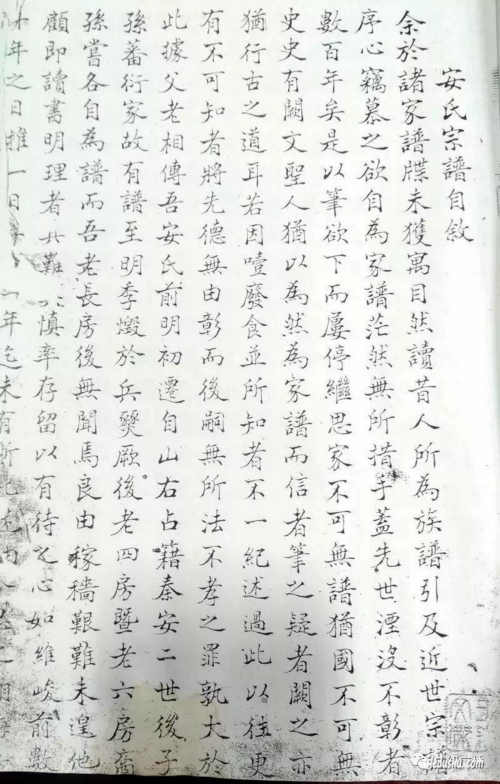 安氏宗譜自敘
余於諸家譜牒未獲寓目然讀昔人所為族譜引及近世宗譜
序心竊慕之欲自為家譜茫然無所措手蓋先世湮沒不彰者
數百年矣是以筆欲下而屢停繼思家不可無譜猶國不可無
史史有闕文聖人猶以為然為家譜而信者筆之疑者闕之亦
猶行古之道耳若因噎廢食並所知者不一紀述過此以往更
有不可知者將先德無由彰而後嗣無所法不孝之罪孰大於
此據父老相傳吾安氏前明初遷自山右占籍秦安二世後子
孫蕃衍家故有譜至明季燬於兵燹厥後老四房暨老六房裔
孫嘗各自為譜而吾老長房後無聞焉良由稼穡艱難未遑他
顧即讀書明理者難慎率存留以有待之心如維峻前數
年之日推一日年迄未有所